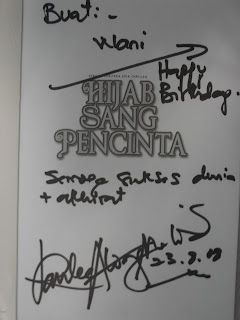 Buat:-
Wani
Happy
Birthday.
HIJAB
SANG
PENCINTA
Semoga Sukses dunia
+ akhirat
23.8.08